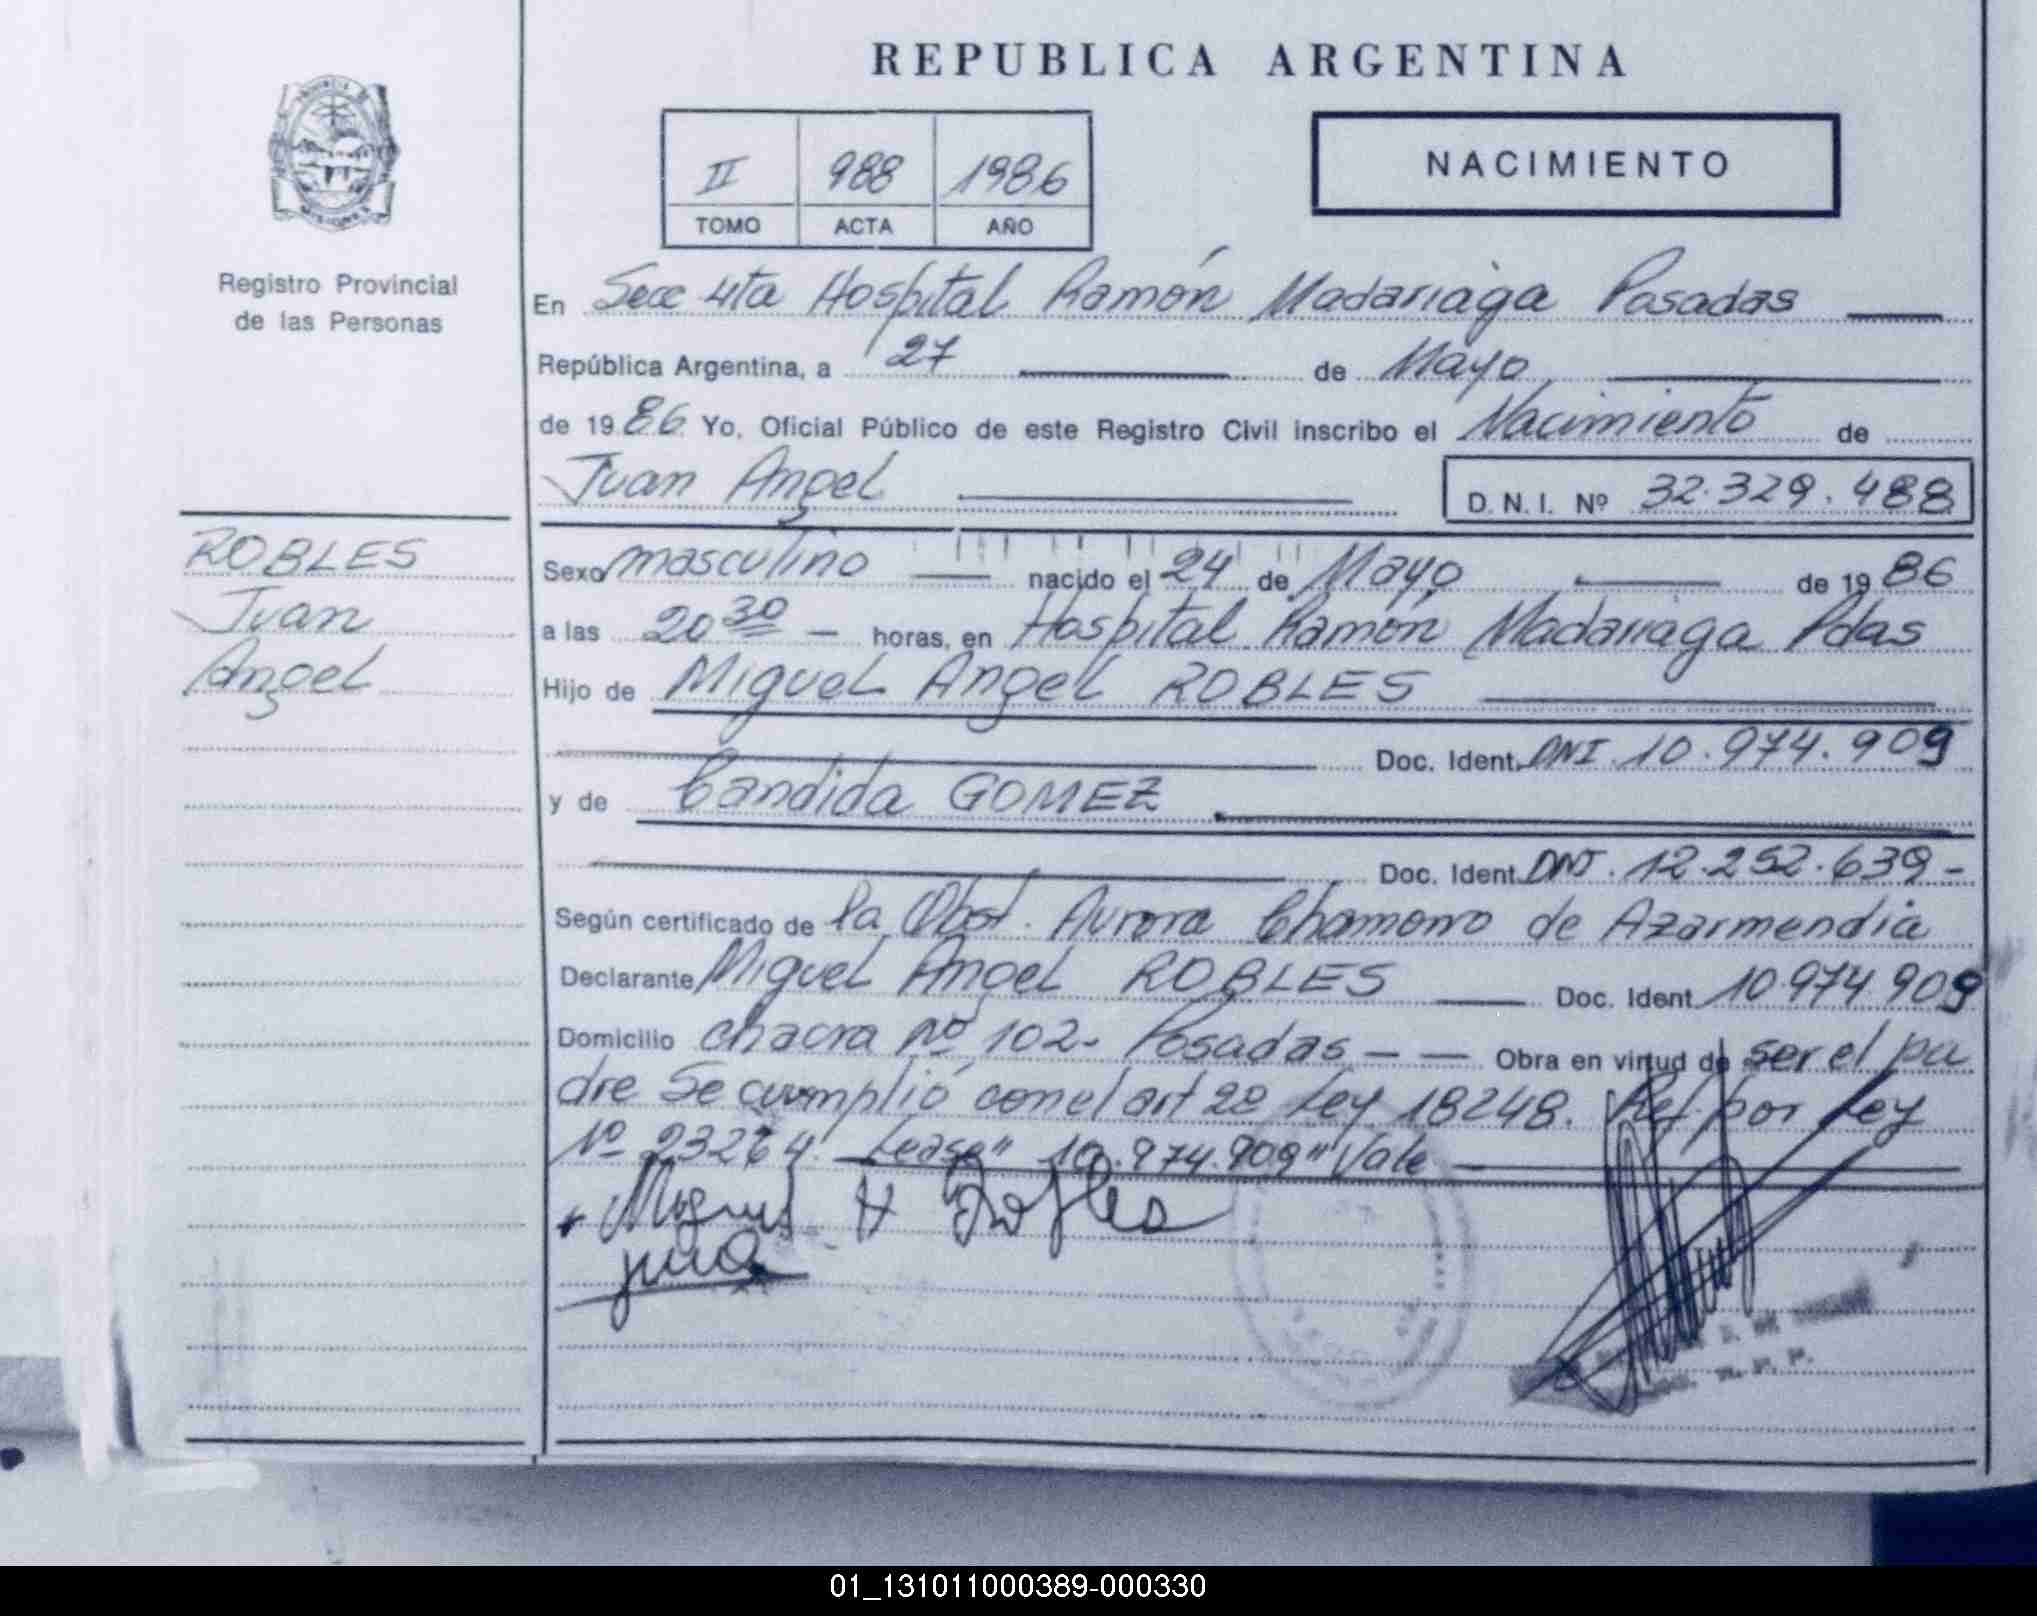 REPUBLICA ARGENTINA
NACIMIENTO
II 988 1986
TOMO ACTA AÑO
Registro Provincial
de las Personas
En Secc 4ta Hospital Ramón Madariaga Posadas
República Argentina, a 27 de Mayo
de 1986 Yo, Oficial Público de este Registro Civil inscribo el Nacimiento de
Juan Angel
D. N. I. Nº 32.329.488
ROBLES
Juan
Angel
Sexo masculino nacido el 24 de Mayo de 1986
a las 20 30 horas, en Hospital Ramón Madariaga Pdas
Hijo de Miguel Angel ROBLES
Doc. Ident. DNI 10.974.909
y de Candida GOMEZ
Doc. Ident. DNI. 12.252.639-
Según certificado de la Obst. Aurora Chamorro de Azarmendia
Declarante Miguel Angel ROBLES Doc. Ident 10974909
Domicilio chacra Nº 102- Posadas - - Obra en virtud de ser el pa
dre Se cumplió con el art 2º Ley 18248. Ref. por Ley
Nº 23264. Lease" 10.974.909" Vale
Miguel A Robles
01_131011000389-000330